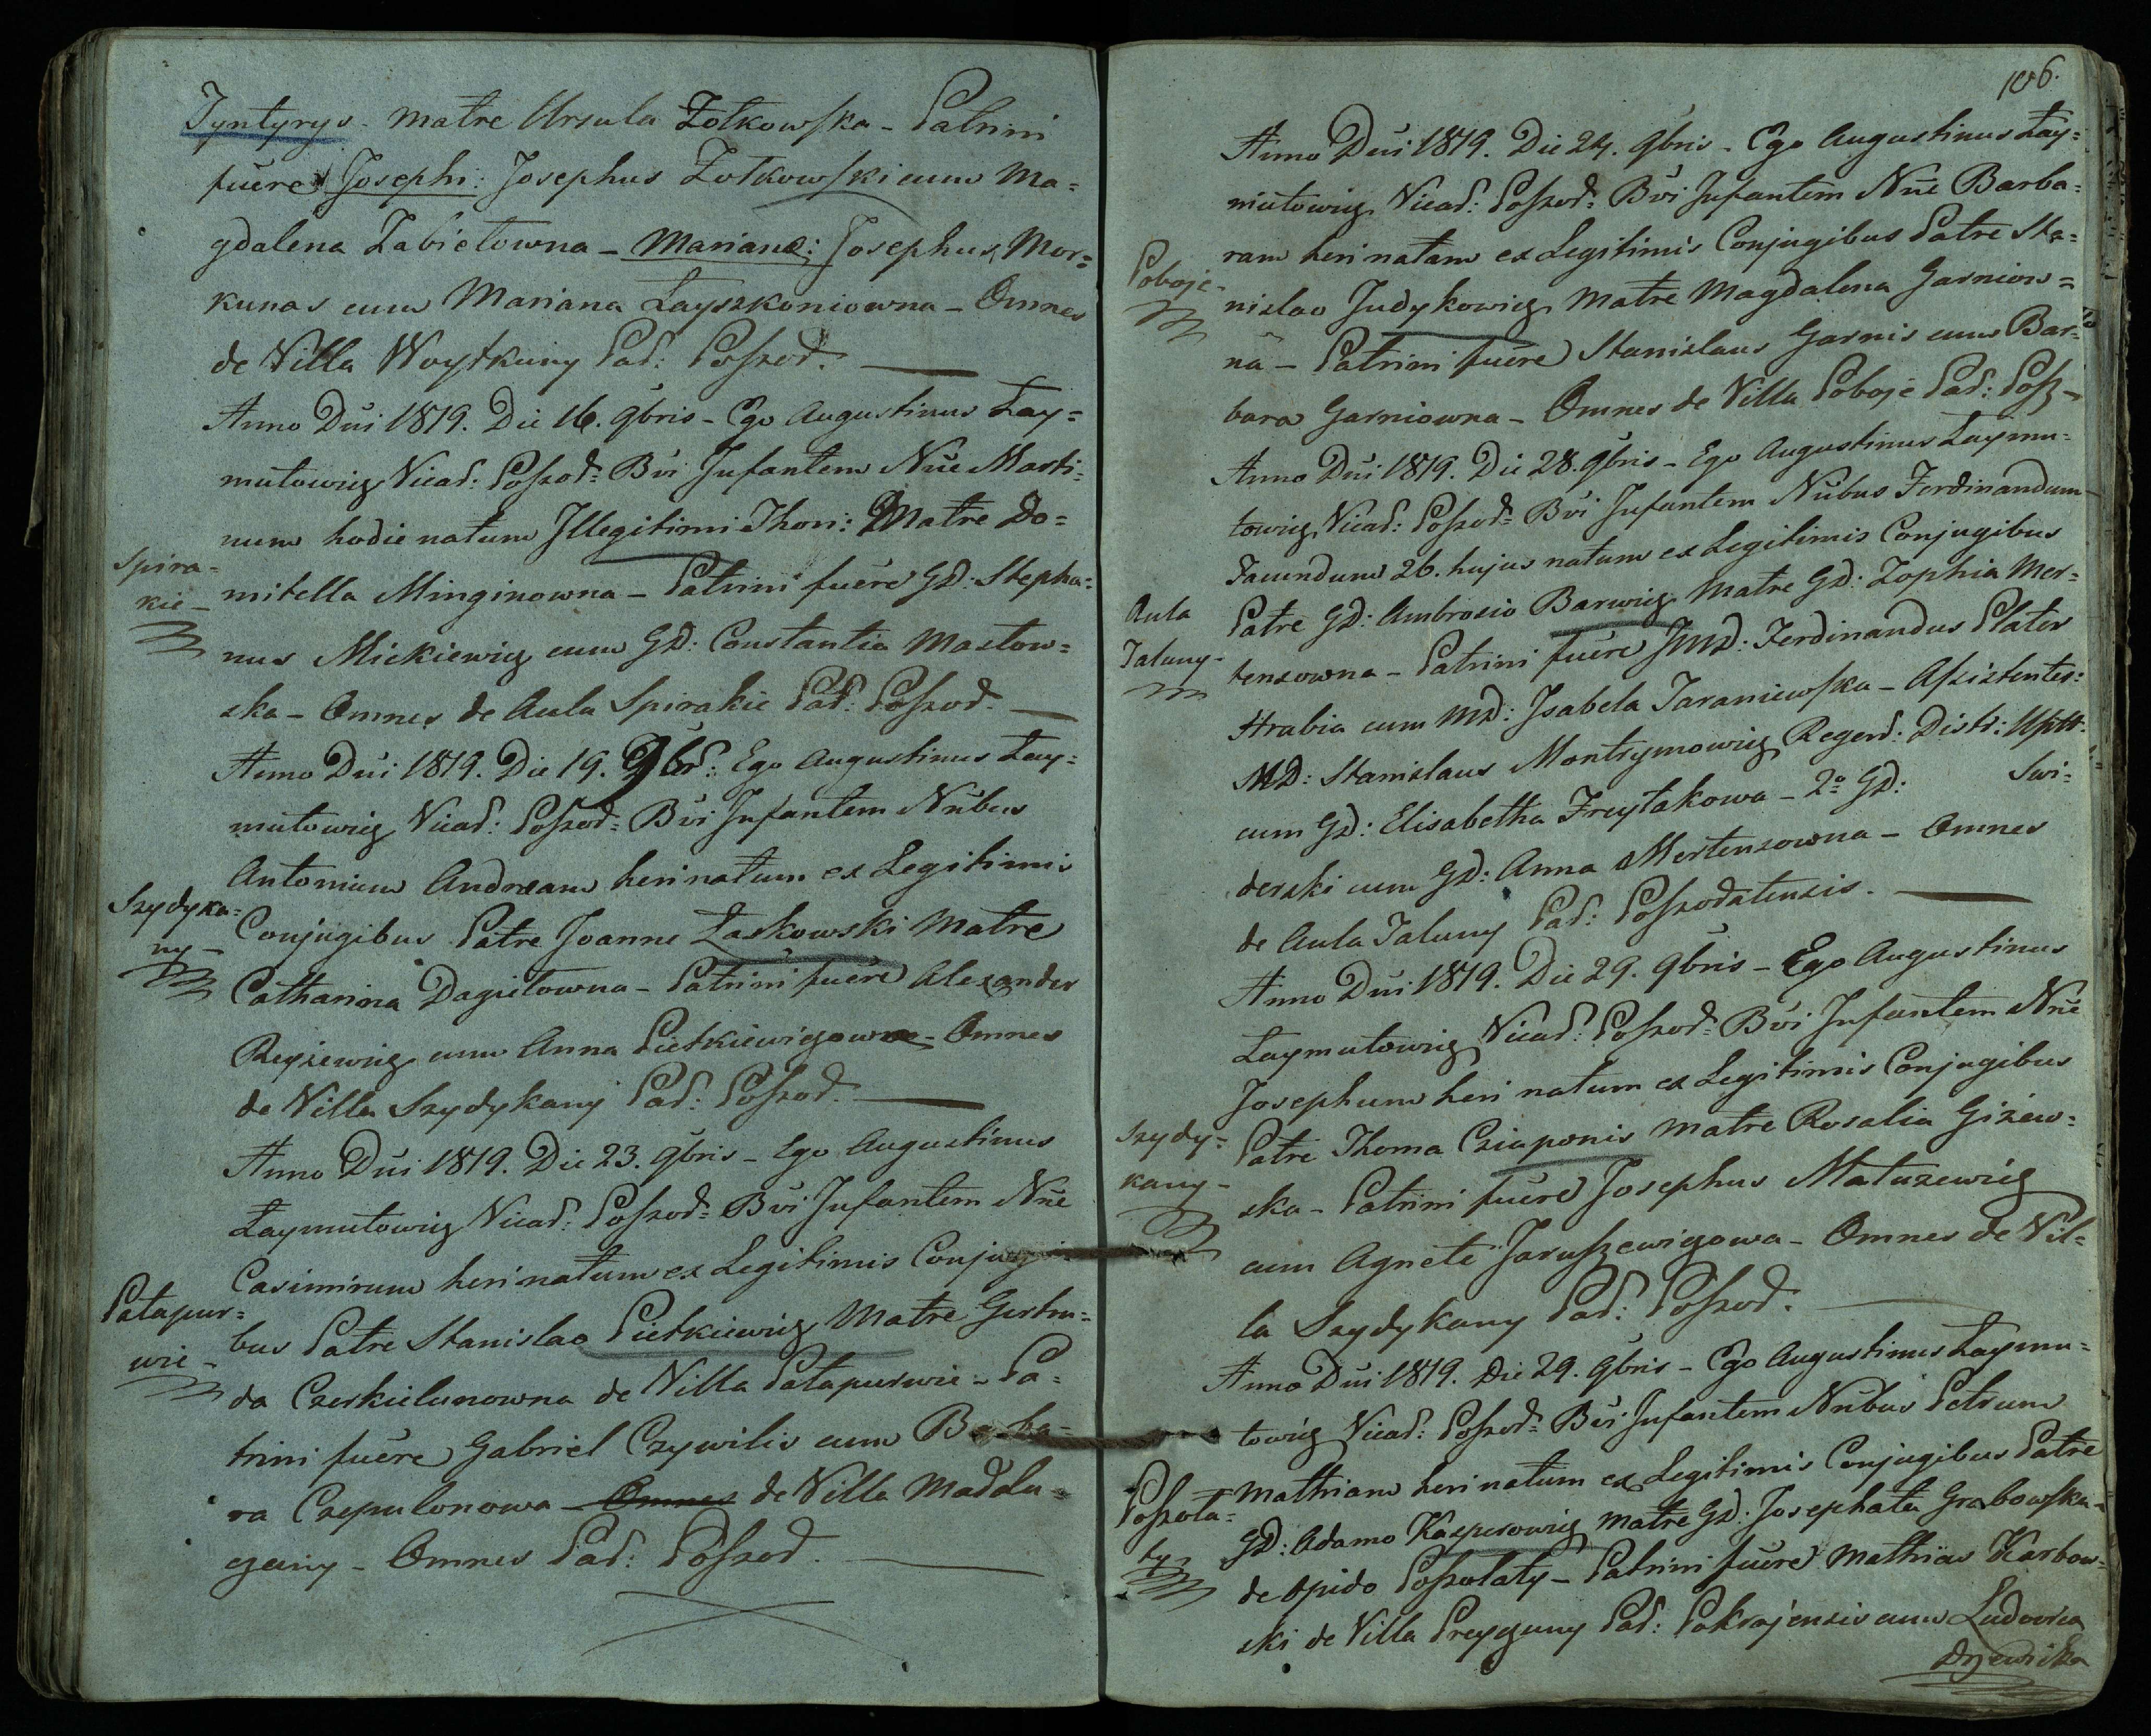 Tyntyrys - Matre Ursula Zołkowska - Patrini
fuere Josephi: Josephus Zołkowski cum Ma=
gdalena Zabietowna - Marianæ: Josephus Mor=
kunas cum Mariana Layszkoniowna - Omnes
de Villa Woytkuny Par: Poszod.
Anno Dni 1819. Die 16. 9bris - Ego Augustinus Zay=
mutowicz Vicar: Poszod: Bvi Infantem Nne Marti=
num hodie natum Illegitimi Thori: Matre Do=
Spira=
kie -
mitella Minginowna - Patrini fuere GD: Stepha=
nus Mickiewicz cum GD: Constantia Masłow=
ska - Omnes de Aula Spirakie Par: Poszod.
Anno Dni 1819. Die 19. 9br: Ego Augustinus Zay=
mutowicz Vicar: Poszod: Bvi Infantem Nnbus
Antonium Andream heri natum ex Legitimis
Szydyka=
ny -
Conjugibus Patre Joanne Laskowski Matre
Catharina Dagietowna - Patrini fuere Alexander
Reyżewicz cum Anna Pietkiewiczowna - Omnes
de Villa Szydykany Par: Poszod.
Anno Dni 1819. Die 23. 9bris - Ego Augustinus
Zaymutowicz Vicar: Poszod: Bvi Infantem Nne
Casimirum heri natum ex Legitimis Conjugi=
Patapur=
wie -
bus Patre Stanislao Pietkiewicz Matre Gertru=
da Czerkielunowna de Villa Patapurwie - Pa=
trini fuere Gabriel Czywilis cum Barba=
ra Czepulonowa - Omnes de Villa Madalu=
gany - Omnes Par: Poszod.
106.
Anno Dni 1819. Die 24. 9bris - Ego Augustinus Zay=
mutowicz Vicar: Poszod: Bvi Infantem Nne Barba=
ram heri natam ex Legitimis Conjugibus Patre Sta=
Poboje -
nislao Judykowicz Matre Magdalena Garniow=
na - Patrini fuere Stanislaus Garnis cum Bar=
bara Garniowna - Omnes de Villa Poboje Par: Posz -
Anno Dni 1819. Die 28. 9bris - Ego Augustinus Zaymu=
towicz Vicar: Poszod: Bvi Infantem Nnbus Ferdinandum
Facundum 26. hujus natum ex Legitimis Conjugibus
Aula
Taluny -
Patre GD: Ambrosio Barwicz Matre GD: Zophia Mer=
tensowna - Patrini fuere JMD: Ferdinandus Plater
Hrabia cum MD: Isabela Taraniewska - Assistentes:
MD: Stanislaus Montrymowicz Regend: Distr: Upitt:
cum GD: Elisabetha Freytakowa - 2o GD: Swi=
derski cum GD: Anna Mertensowna - Omnes
de Aula Taluny Par: Poszodatensis.
Anno Dni 1819. Die 29. 9bris - Ego Augustinus
Zaymutowicz Vicar: Poszod: Bvi Infantem Nne
Josephum heri natum ex Legitimis Conjugibus
Szydy=
kany -
Patre Thoma Cziaponis Matre Rosalia Giżew=
ska - Patrini fuere Josephus Matuzewicz
cum Agnete Jaruszewiczowa - Omnes de Vil=
la Szydykany Par: Poszod.
Anno Dni 1819. Die 29. 9bris - Ego Augustinus Zaymu=
towicz Vicar: Poszod: Bvi Infantem Nnbus Petrum
Poszoła=
ty -
Mathiam heri natum ex Legitimis Conjugibus Patre
GD: Adamo Kasperowicz Matre GD: Josephata Grabowska -
de Opido Poszołaty - Patrini fuere Mathias Karbow=
ski de Villa Preyguny Par: Pokrojensis cum Ludovica
Drzewicka